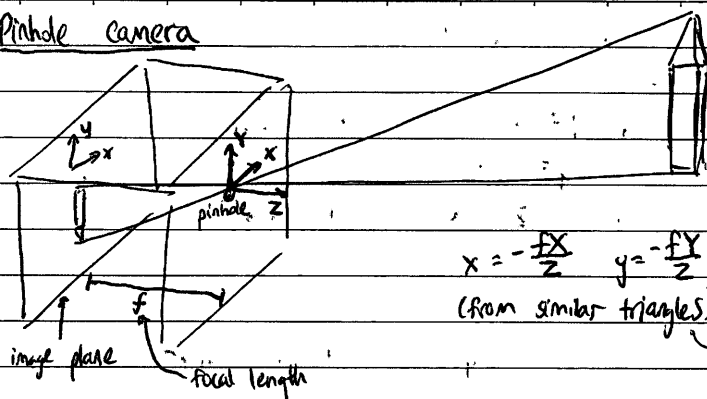 Pinhole camera
y
x
Y
X
Z
pinhole
x = -fX/Z   y = -fY/Z
(from similar triangles)
f
image plane
focal length